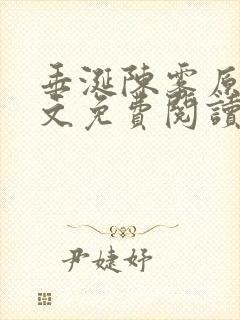 垂涎陳霧原
文免費閱讀
尹婕妤